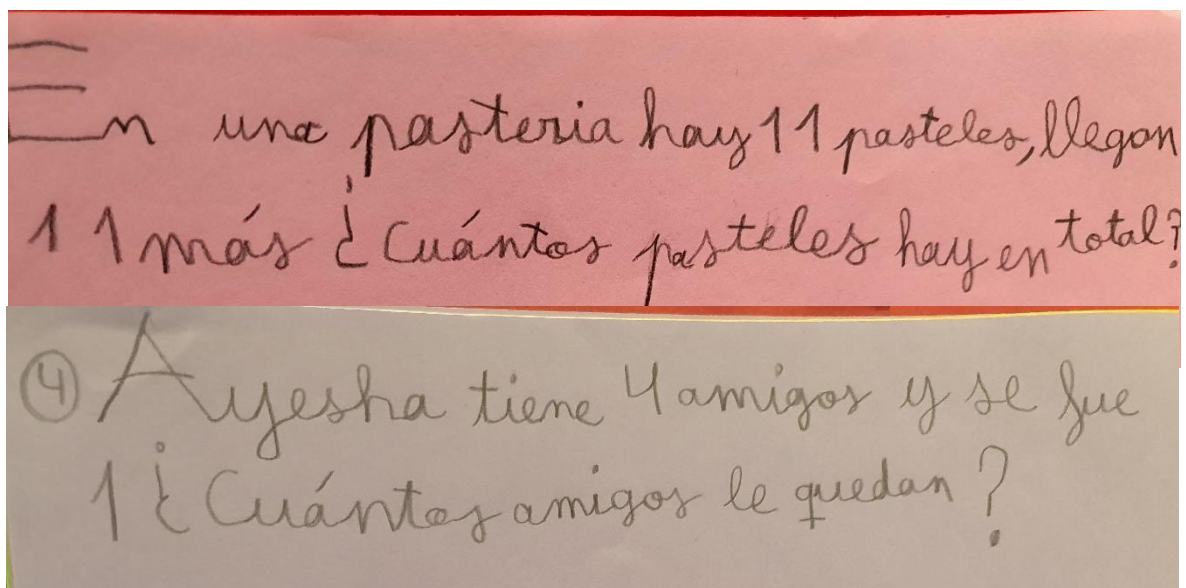 En una pasteria hay 11 pasteles, llegan
11 más ¿Cuántos pasteles hay en total?
④ Ayesha tiene 4 amigos y se fue
1 ¿Cuántos amigos le quedan?